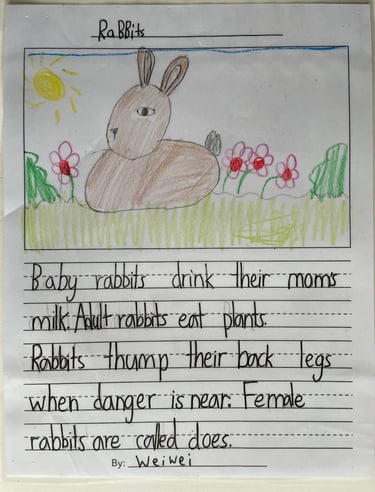 RaBBits
Baby rabbits drink their moms
milk. Adult rabbits eat plants.
Rabbits thump their back legs
when danger is near. Female
rabbits are called does.
By: Weiwei